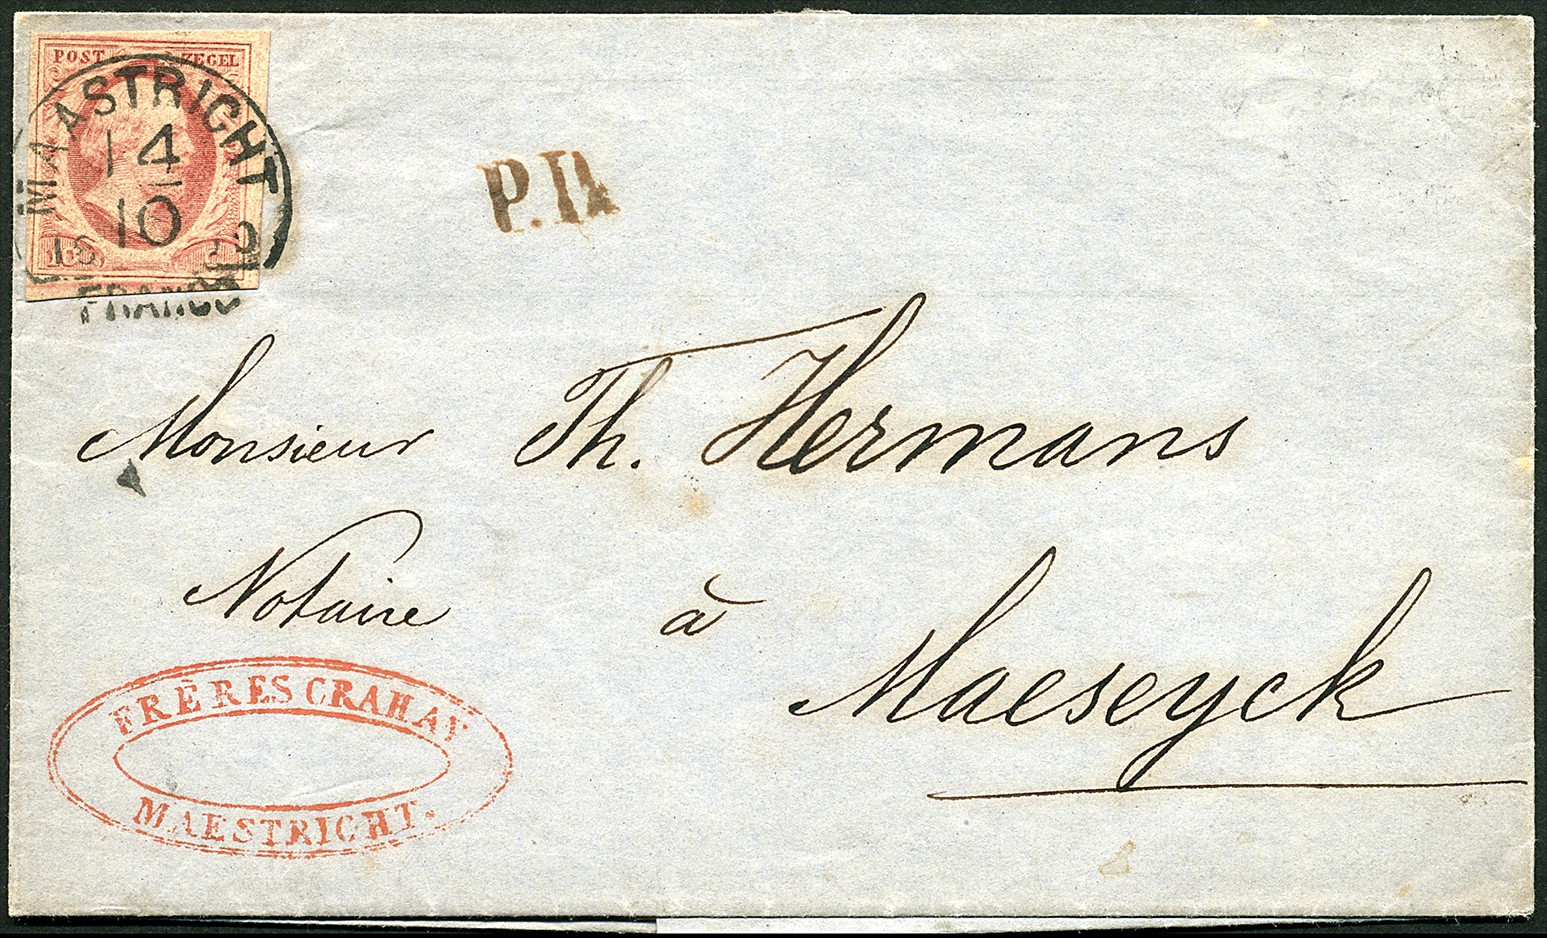 POST ZEGEL
MAASTRICHT
14
10
FRANCO
P.D
Monsieur Th. Hermans
Notaire à
Maeseyck
FRÈRES CRAHAY
MAESTRICHT.